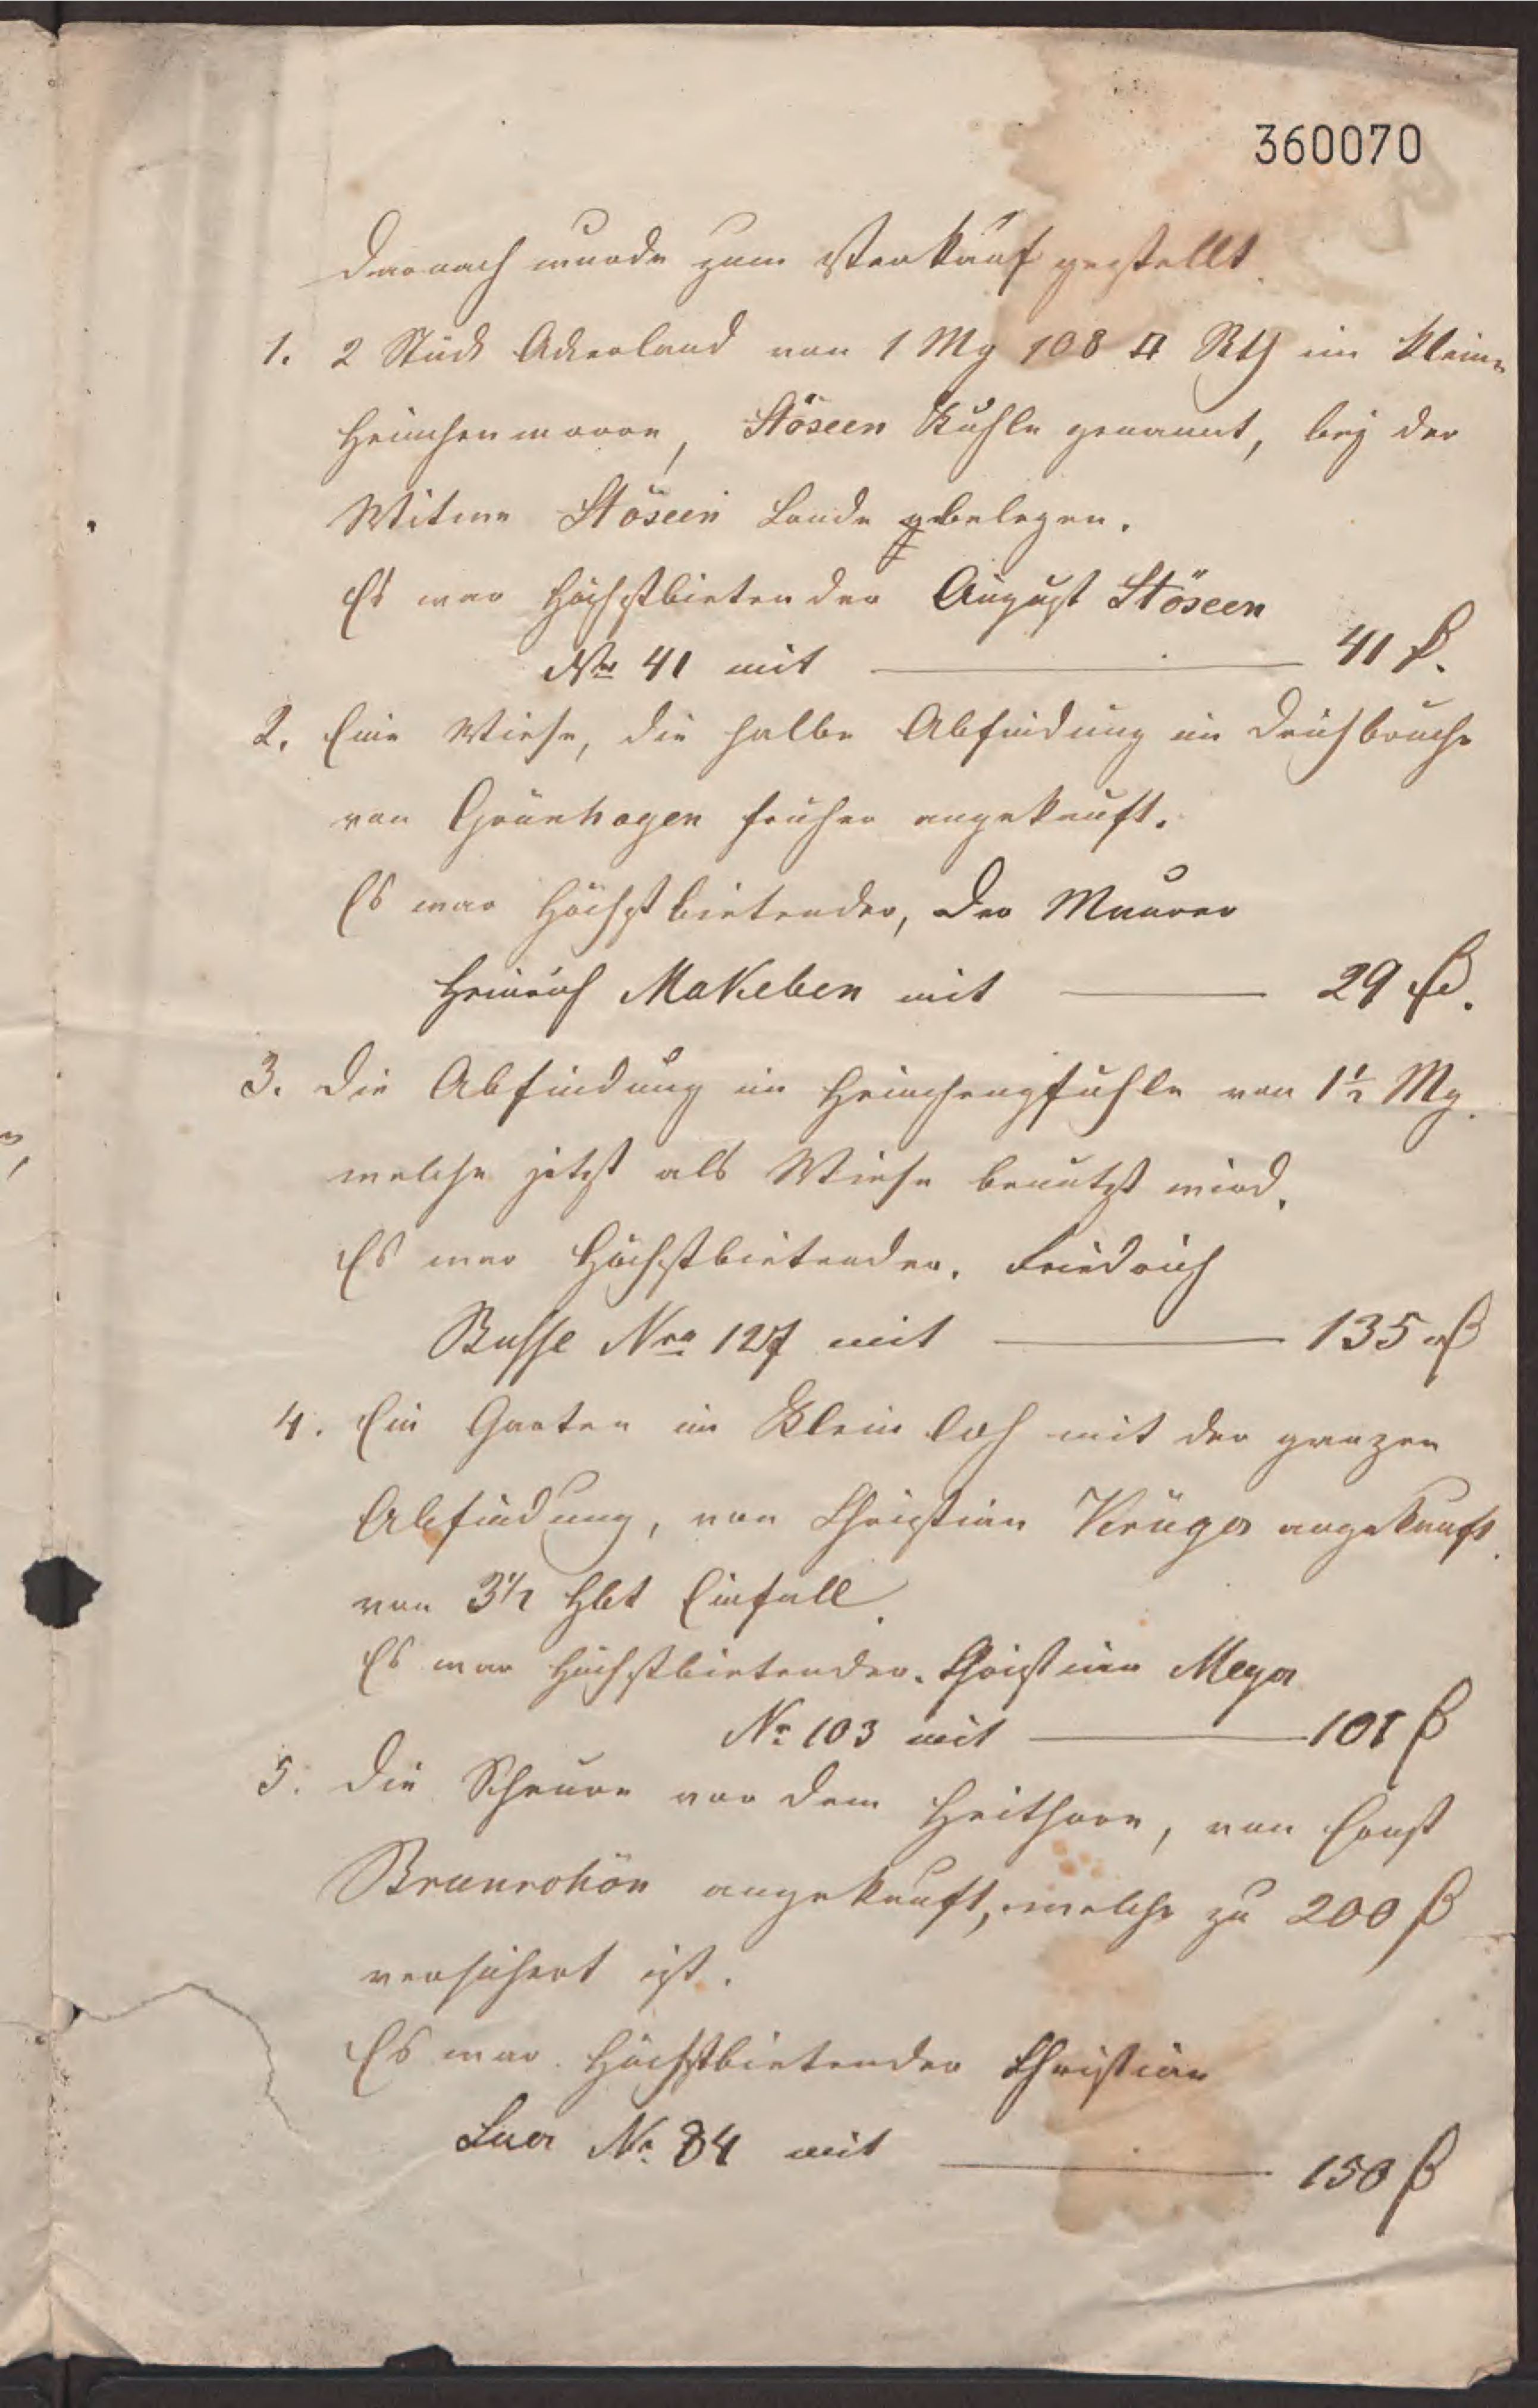 360070
Darnach wurde zum Verkauf gestellt.
1. 2 Stück Ackerland von 1 Mg 108 □ Rth im Klein-
Heimhenmoore, Stöseen Kuhle genannt, bej der
Witwe Stöseen Lande belegen.
Es war Höchstbietender August Stöseen
Nro 41 mit — 41 ₰.
2. Eine Wiese, die halbe Abfindung im
von Grünhagen früher angekauft.
Es war Höchstbietender, der Maurer
Heinrich Makeben mit — 29 ₰.
3. Die Abfindung im von 1½ Mg.
welche jetzt als Wiese benutzt wird.
Es war Höchstbietender. Friedrich
Busse Nro 127 mit — 135 ₰
4. Ein Garten im Klein Loh mit der ganzen
Abfindung, von Christian Krüger angekauft.
von 3½ Hbt Einfall.
Es war Höchstbietender. Christian Meyer
No 103 mit — 101 ₰
5. Die Scheune vor dem, von Ernst
angekauft, welche zu 200 ₰
versichert ist.
Es war Höchstbietender Christian
Luer No 84 mit — 150 ₰